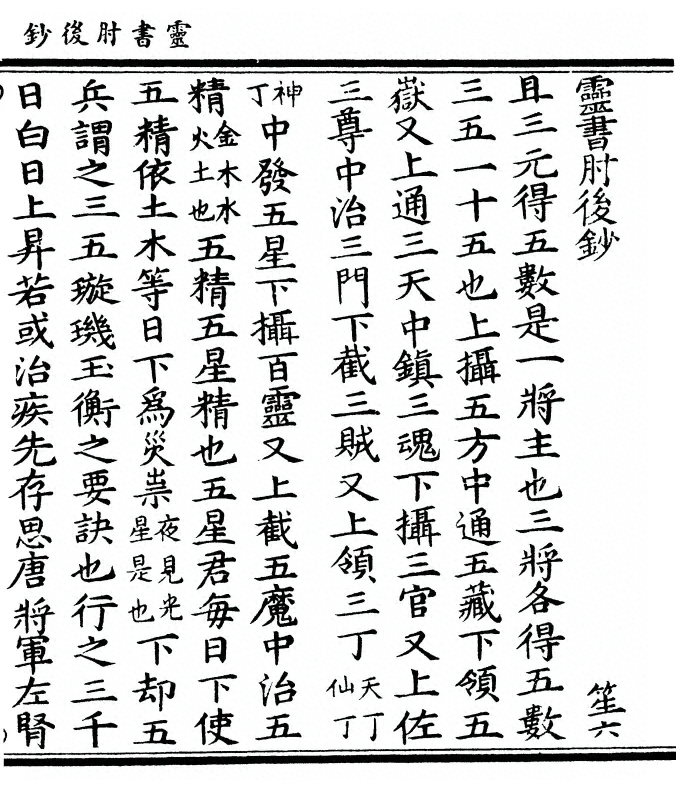 靈書肘後鈔
靈書肘後鈔 笙六
且三元得五數是一將主也三將各得五數
三五一十五也上攝五方中通五藏下領五
嶽又上通三天中鎮三魂下攝三官又上佐
三尊中治三門下截三賊又上領三丁天丁仙丁
神丁中發五星下攝百靈又上截五魔中治五
精金木水火土也五精五星精也五星君每日下使
五精依土木等日下為災祟夜見光星是也下却五
兵謂之三五璇璣玉衡之要訣也行之三千
日白日上昇若或治疾先存思唐將軍左腎